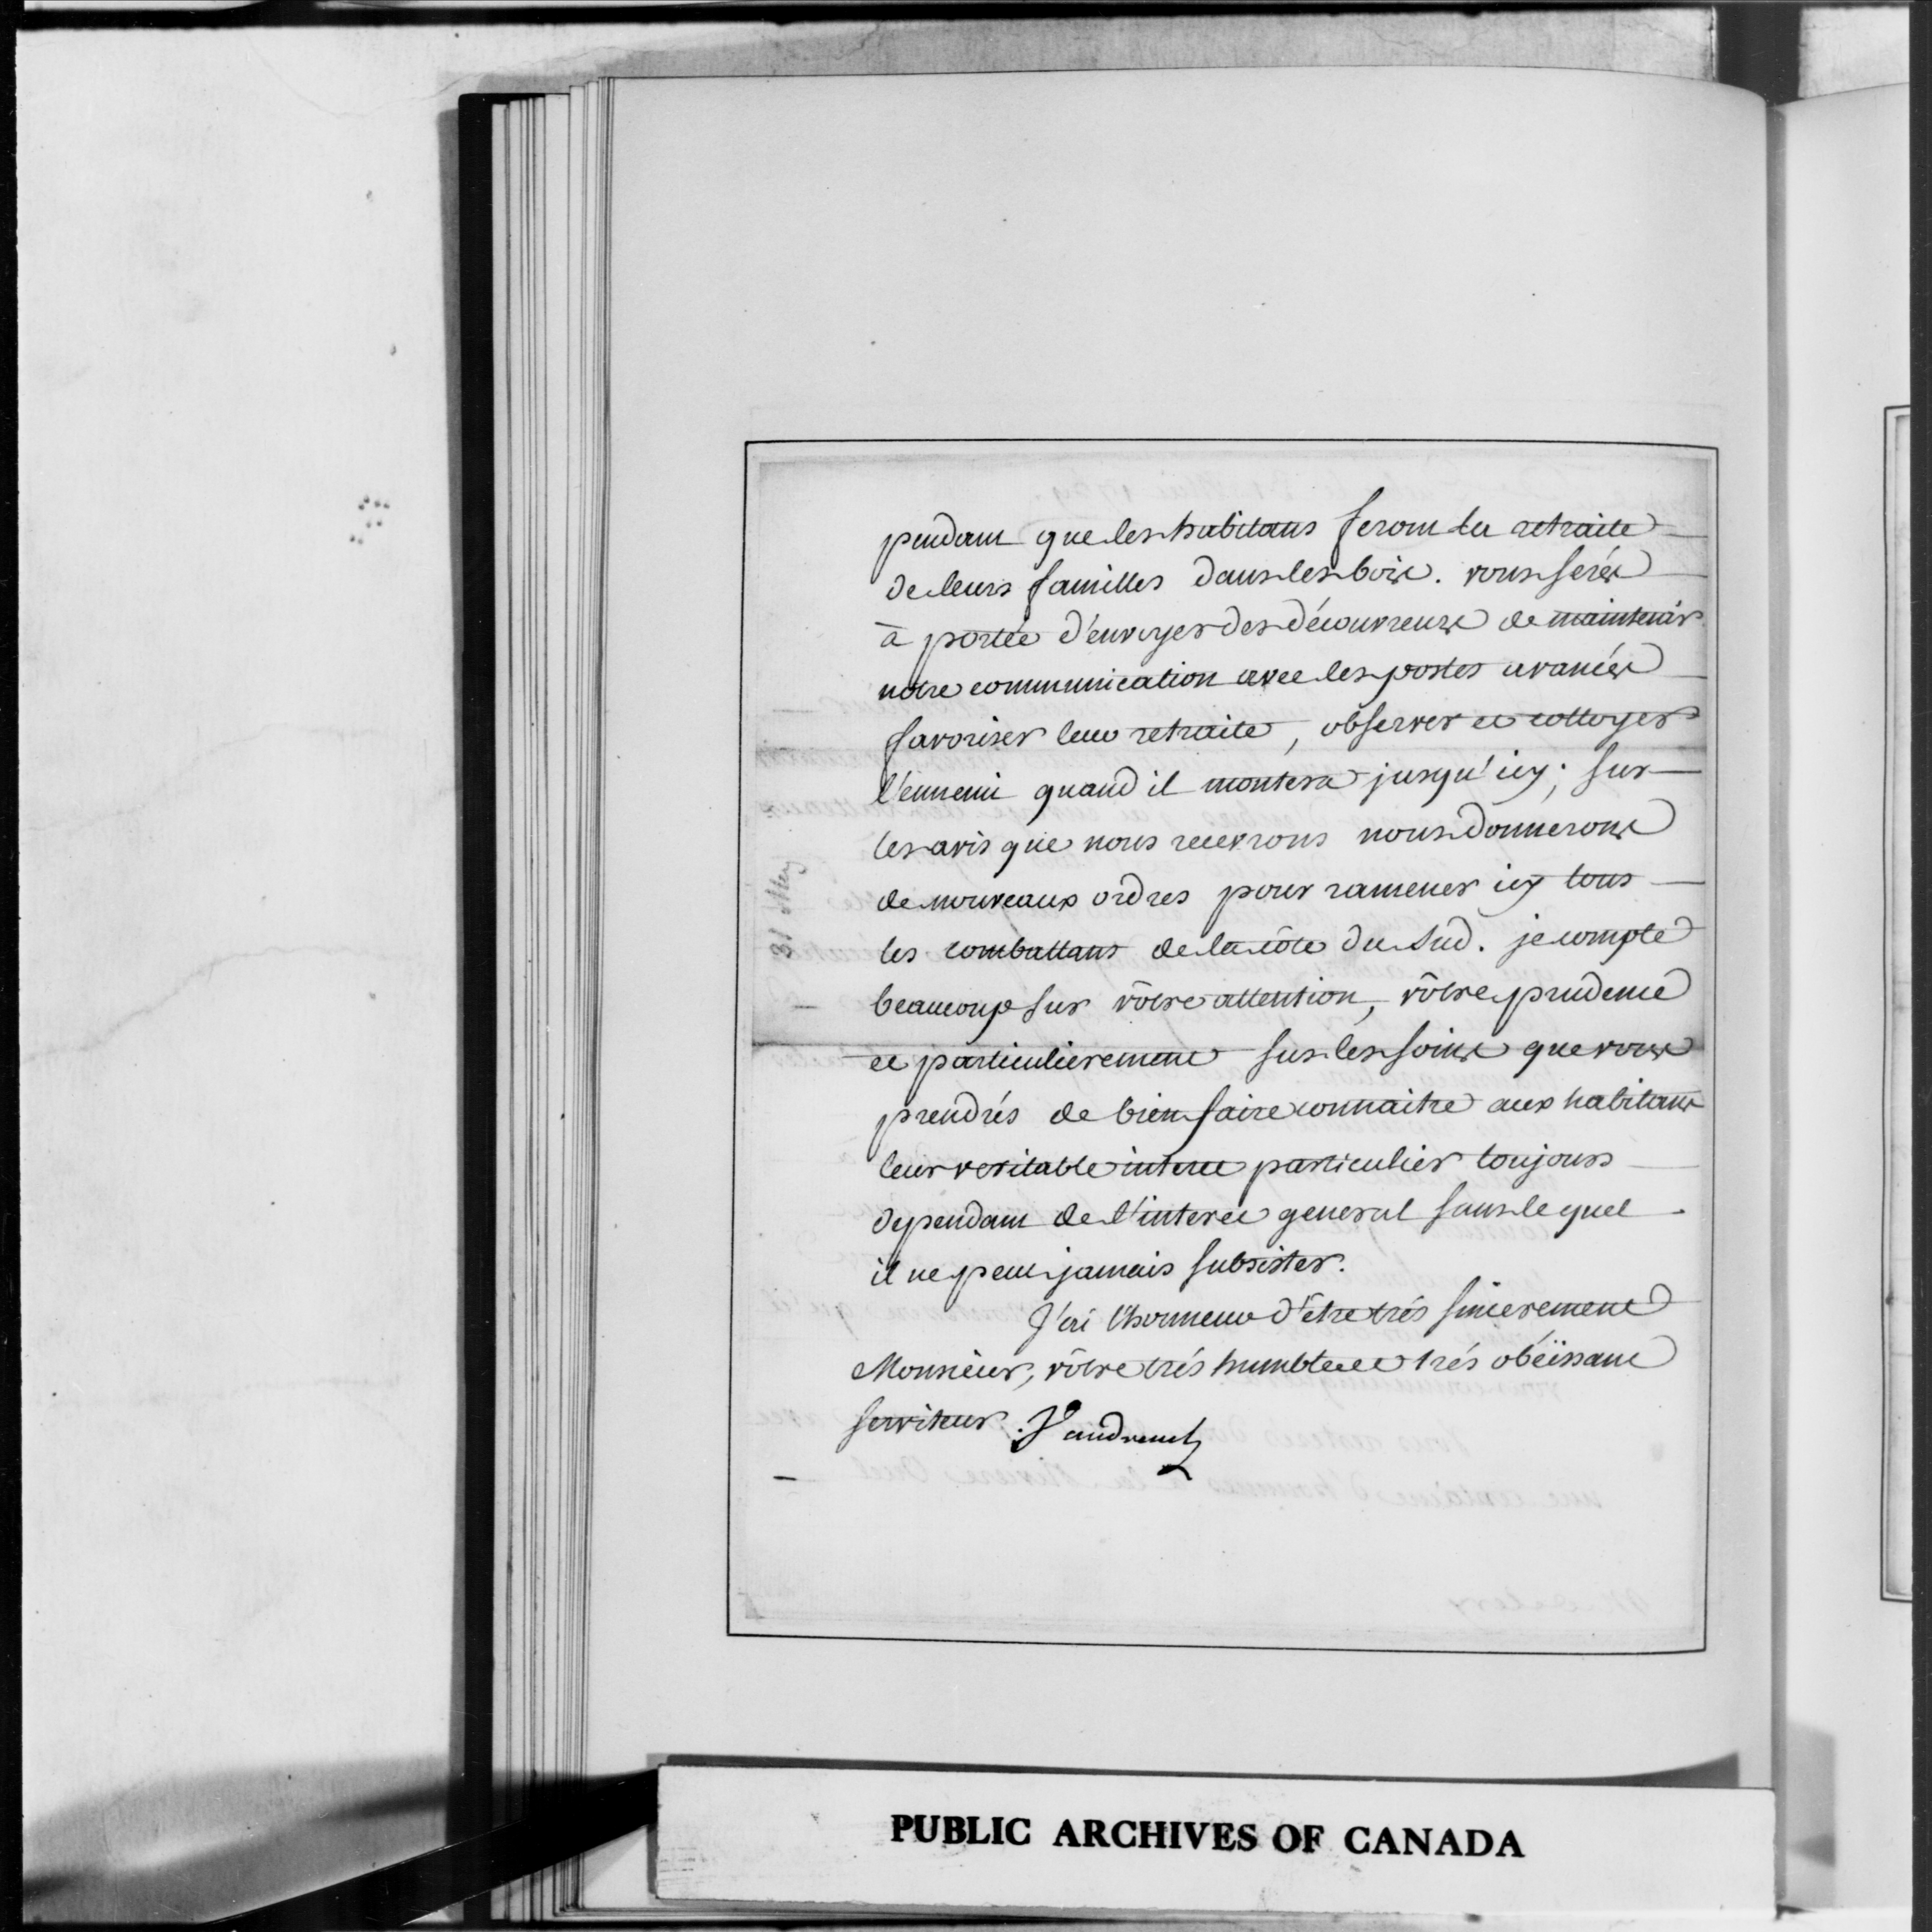 pendant que les habitans feront la retraite
de leurs familles dans les bois. vous serés
à portée d'envoyer des découvreurs de maintenir
notre communication avec les postes avancés
favoriser leur retraite, observer et cottoyer
l'ennemi quand il montera jusqu'icy; sur
les avis que nous recevrons nous donnerons
de nouveaux ordres pour ramener icy tous
les combattans de la côte du sud. je compte
beaucoup sur vôtre attention, vôtre prudence
et particulierement sur les soins que vous
prendrés de bien faire connaitre aux habitans
leur veritable interet particulier toujours
dependant de l'interet general sans le quel
il ne peut jamais subsister.
J'ai l'honneur d'être trés sincerement
Monsieur, vôtre trés humble et trés obéissant
serviteur. Vaudreuil
31 May
PUBLIC ARCHIVES OF CANADA